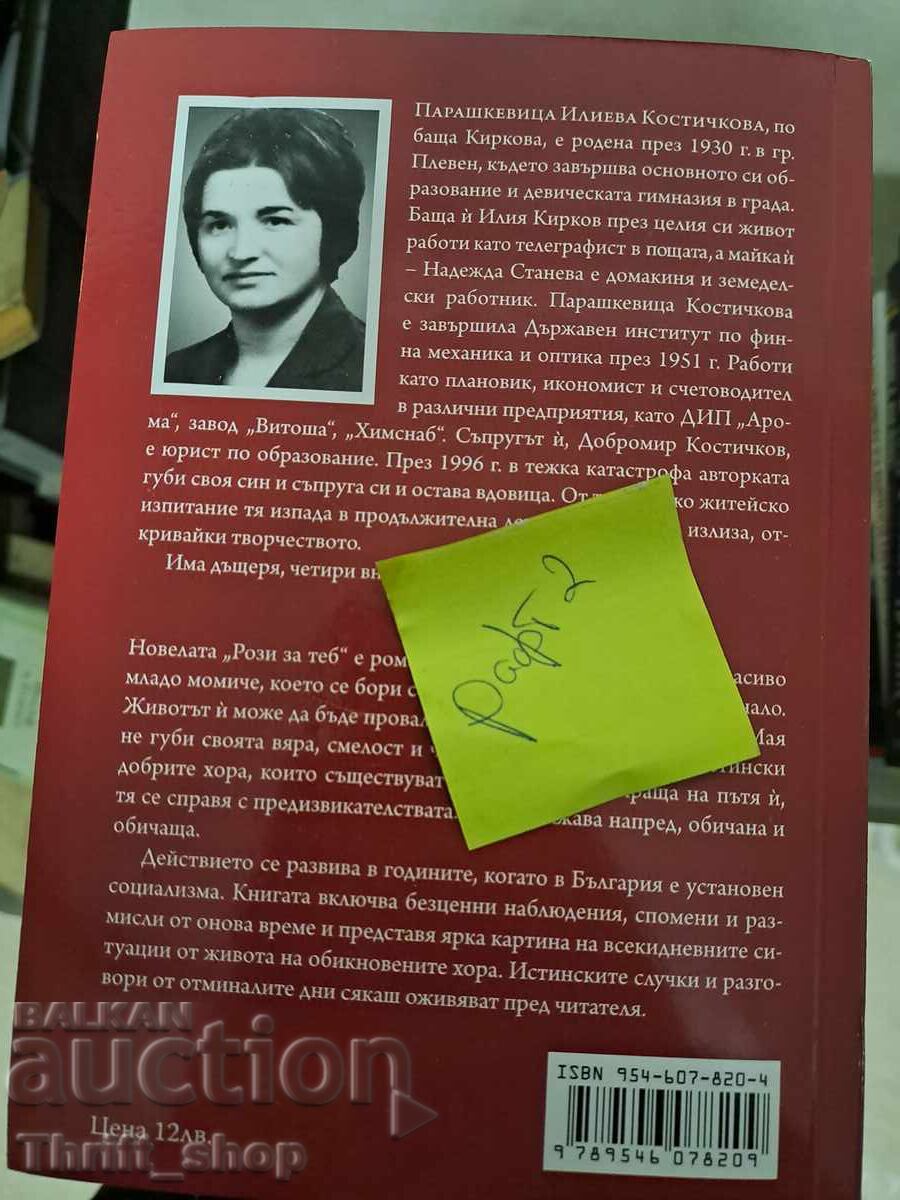 Парашкевица Илиева Костичкова, по
баща Киркова, е родена през 1930 г. в гр.
Плевен, където завършва основното си об-
разование и девическата гимназия в града.
Баща ѝ Илия Кирков през целия си живот
работи като телеграфист в пощата, а майка ѝ
– Надежда Станева е домакиня и земедел-
ски работник. Парашкевица Костичкова
е завършила Държавен институт по фин-
на механика и оптика през 1951 г. Работи
като плановик, икономист и счетоводител
в различни предприятия, като ДИП „Аро-
ма“, завод „Витоша“, „Химснаб“. Съпругът ѝ, Добромир Костичков,
е юрист по образование. През 1996 г. в тежка катастрофа авторката
губи своя син и съпруга си и остава вдовица. От житейско
изпитание тя изпада в продължителна излиза, от-
кривайки творчеството.
Има дъщеря, четири
рафт 2
Новелата „Рози за теб“ е
младо момиче, което се бори
Животът ѝ може да бъде Мая
не губи своята вяра, смелост и
добрите хора, които съществуват на пътя ѝ,
тя се справя с предизвикателствата. напред, обичана и
обичаща.
Действието се развива в годините, когато в България е установен
социализма. Книгата включва безценни наблюдения, спомени и раз-
мисли от онова време и представя ярка картина на всекидневните си-
туации от живота на обикновените хора. Истинските случки и разго-
вори от отминалите дни сякаш оживяват пред читателя.
BALKAN
auction
Цена 12лв.
Thrift_shop
ISBN 954-607-820-4
9 789546 078209